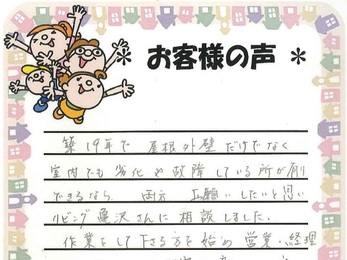 ＊ お客様の声 ＊
築19年で 屋根外壁だけでなく
室内でも 劣化や故障している所が
できるなら 両方 したいと思い
リビング亀沢さんに相談しました。
作業をして下さる方を始め 営業・経理